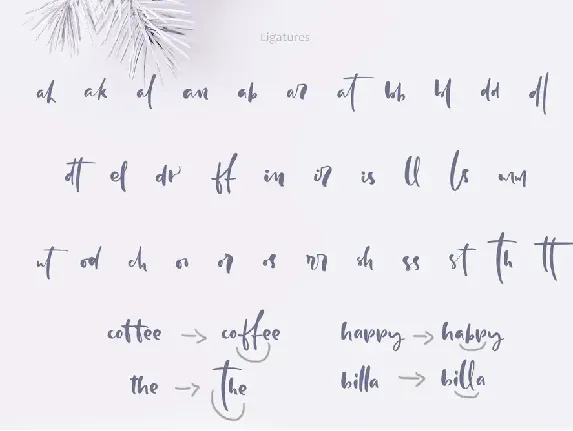 Ligatures
ah ak al an ar at bb bl dd dl
dt el dr ff in ir is ll ls mm
nt od ch or os rr sh ss st th tt
coffee → coffee happy → happy
the → the billa → billa